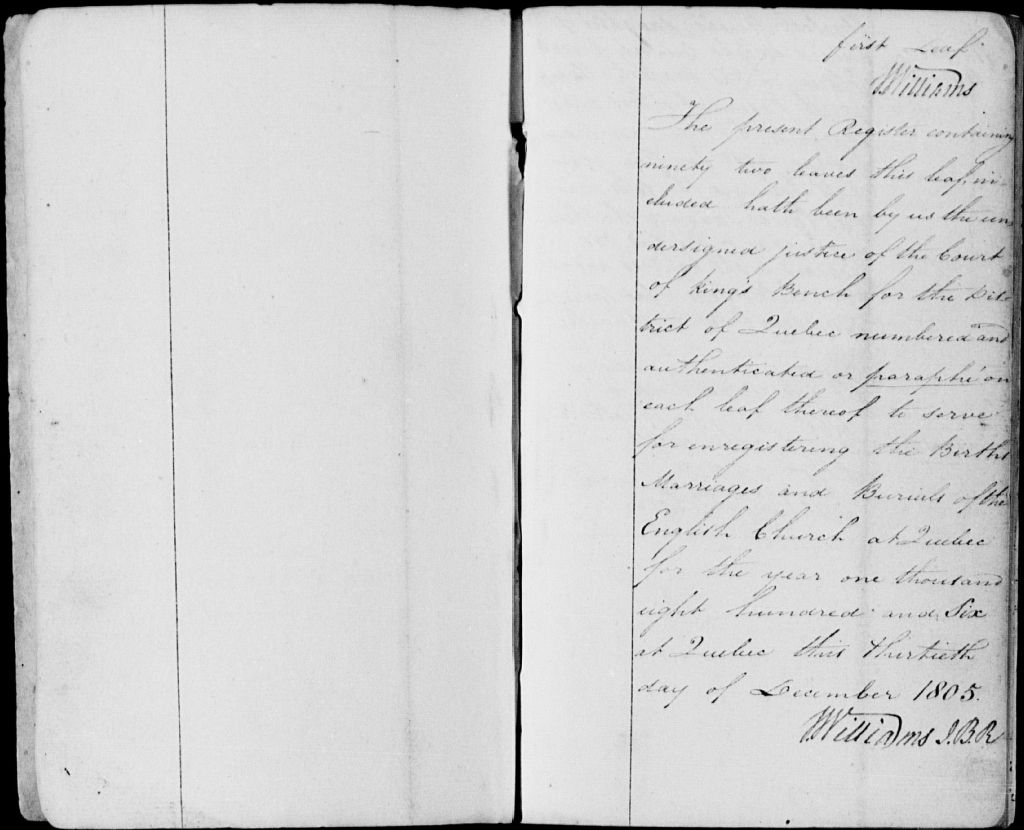 first Leaf
Williams
The present Register containing
ninety two leaves this leaf in-
cluded hath been by us the un
dersigned justice of the Court
of King's Bench for the Dis-
trict of Quebec numbered and
authenticated or paraphé on
each leaf thereof to serve
for enregistering the Births
Marriages and Burials of the
English Church at Quebec
for the year one thousand
eight hundred and Six
at Quebec this thirtieth
day of December 1805.
Williams J.B.R